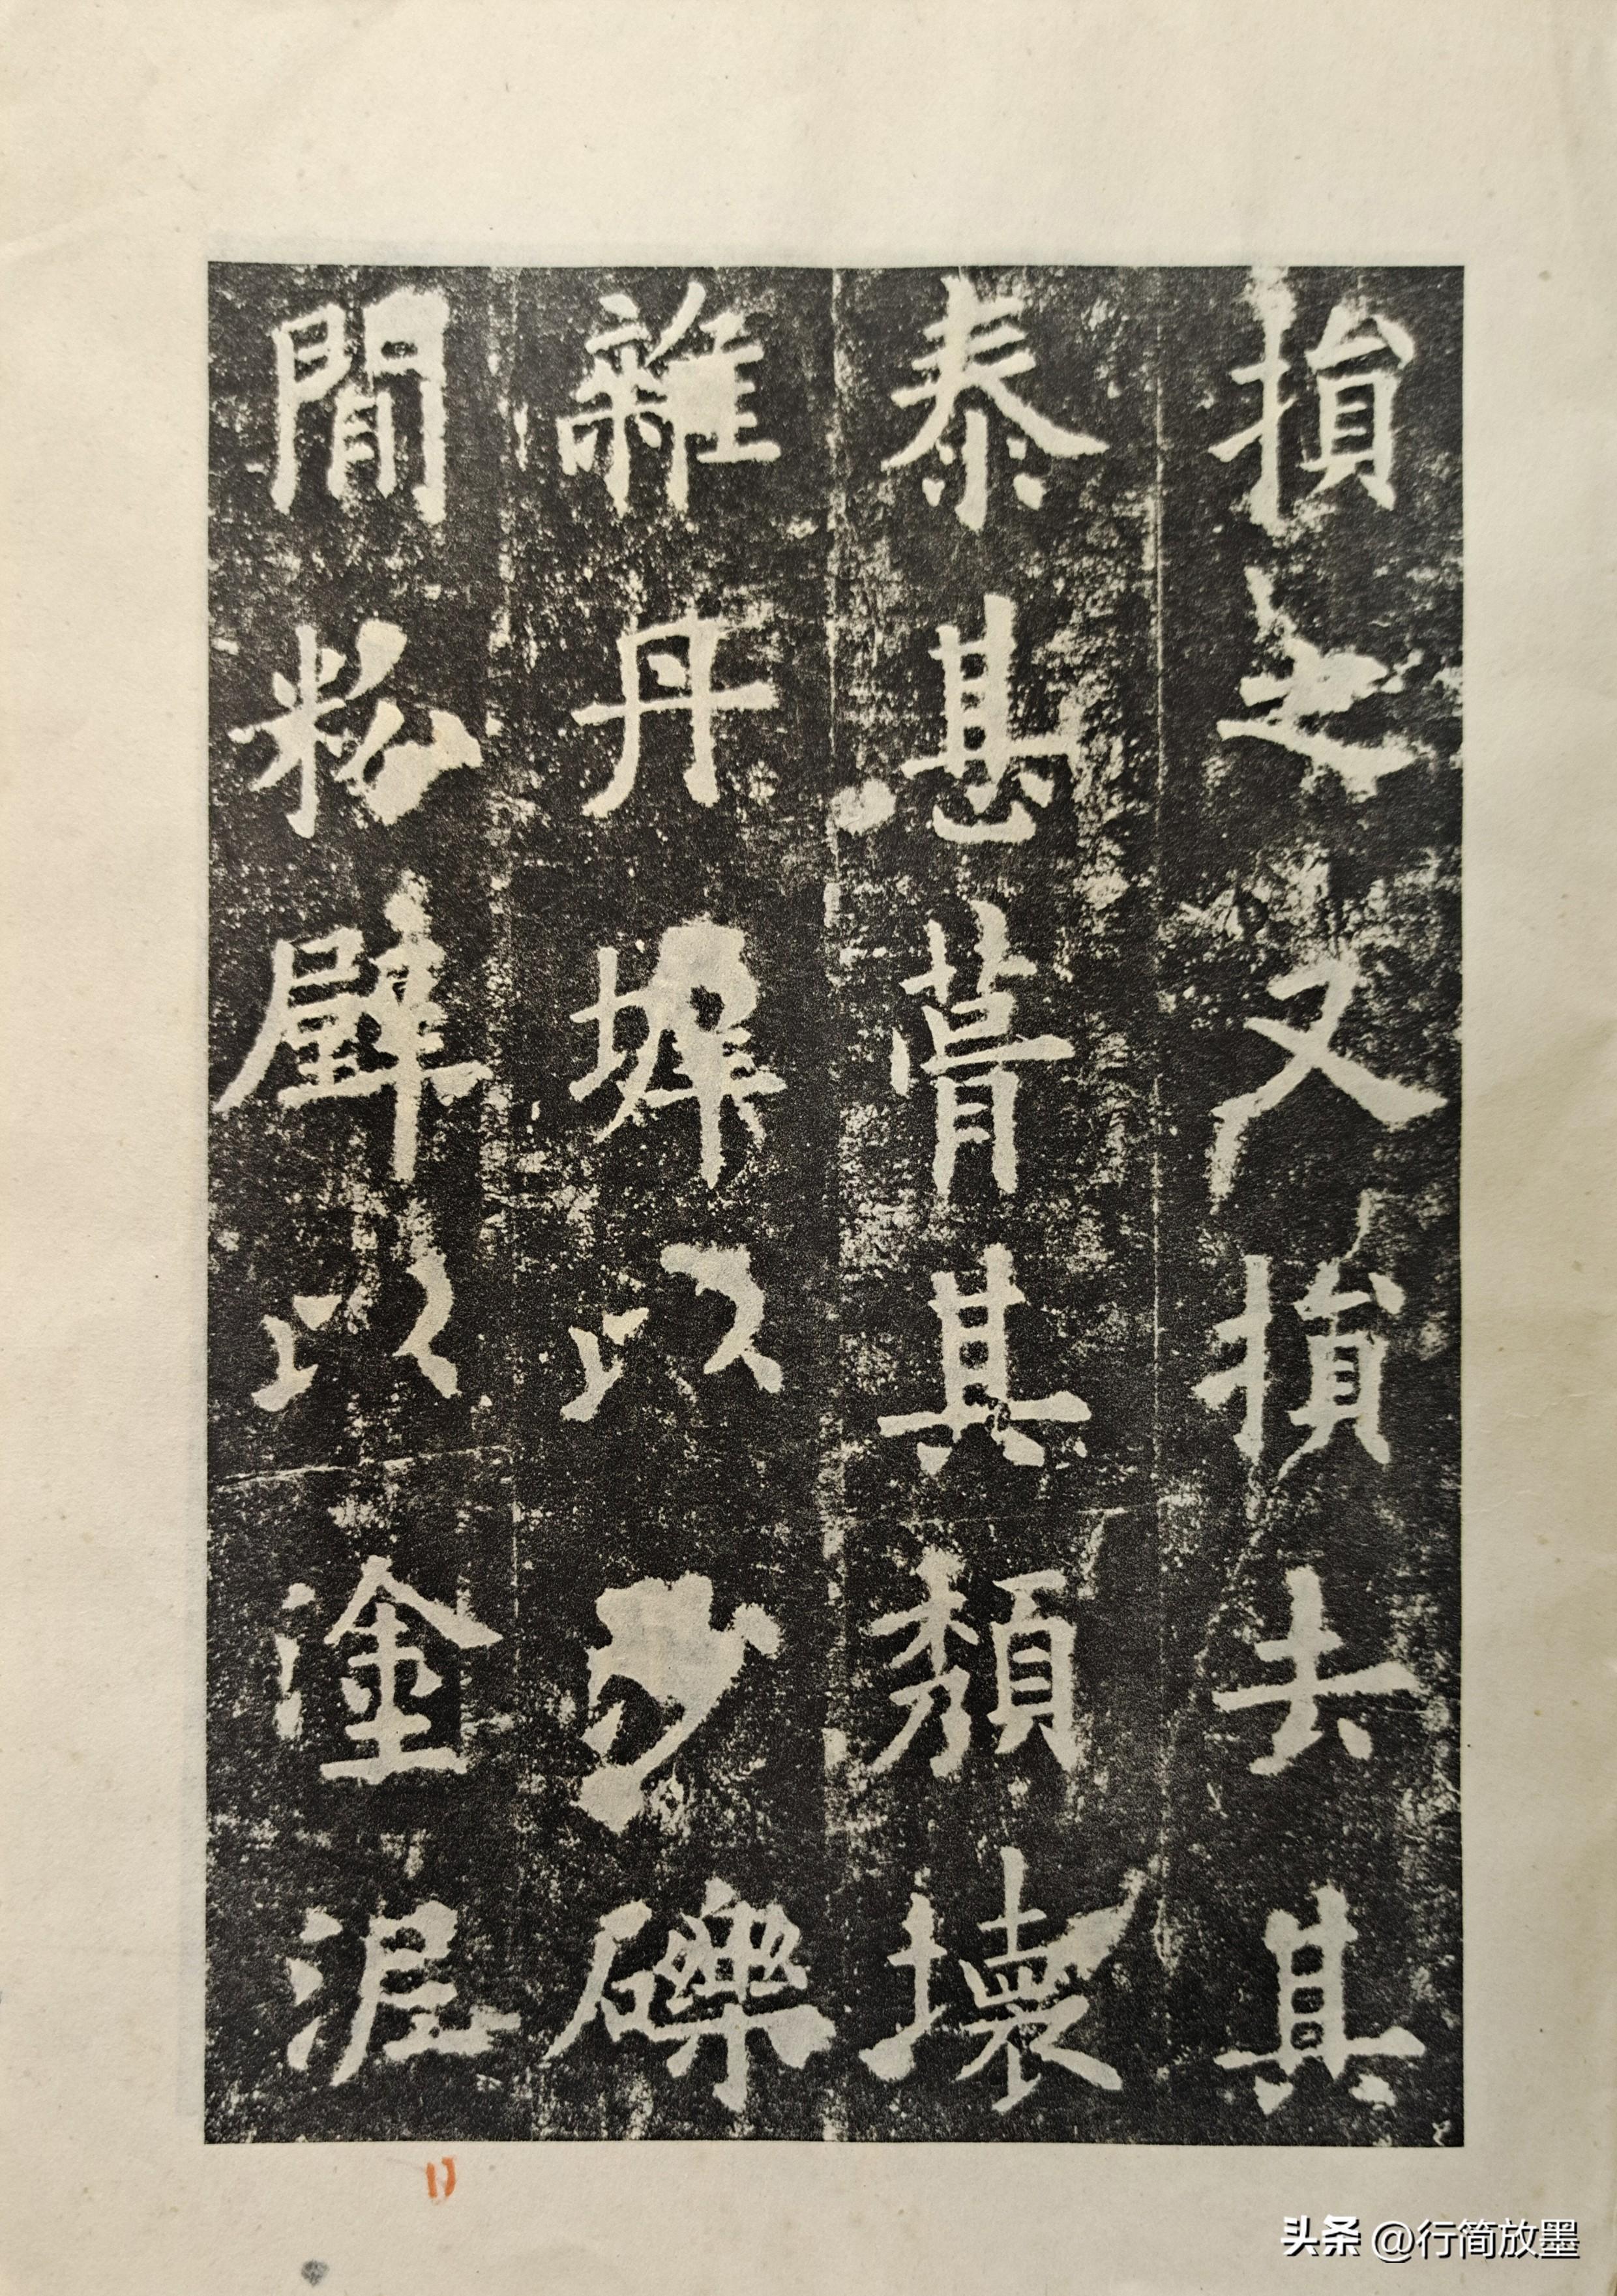 損之又損去其
泰甚葺其頹壞
雜丹墀以沙礫
間粉壁以塗泥
11
头条 @行简放墨